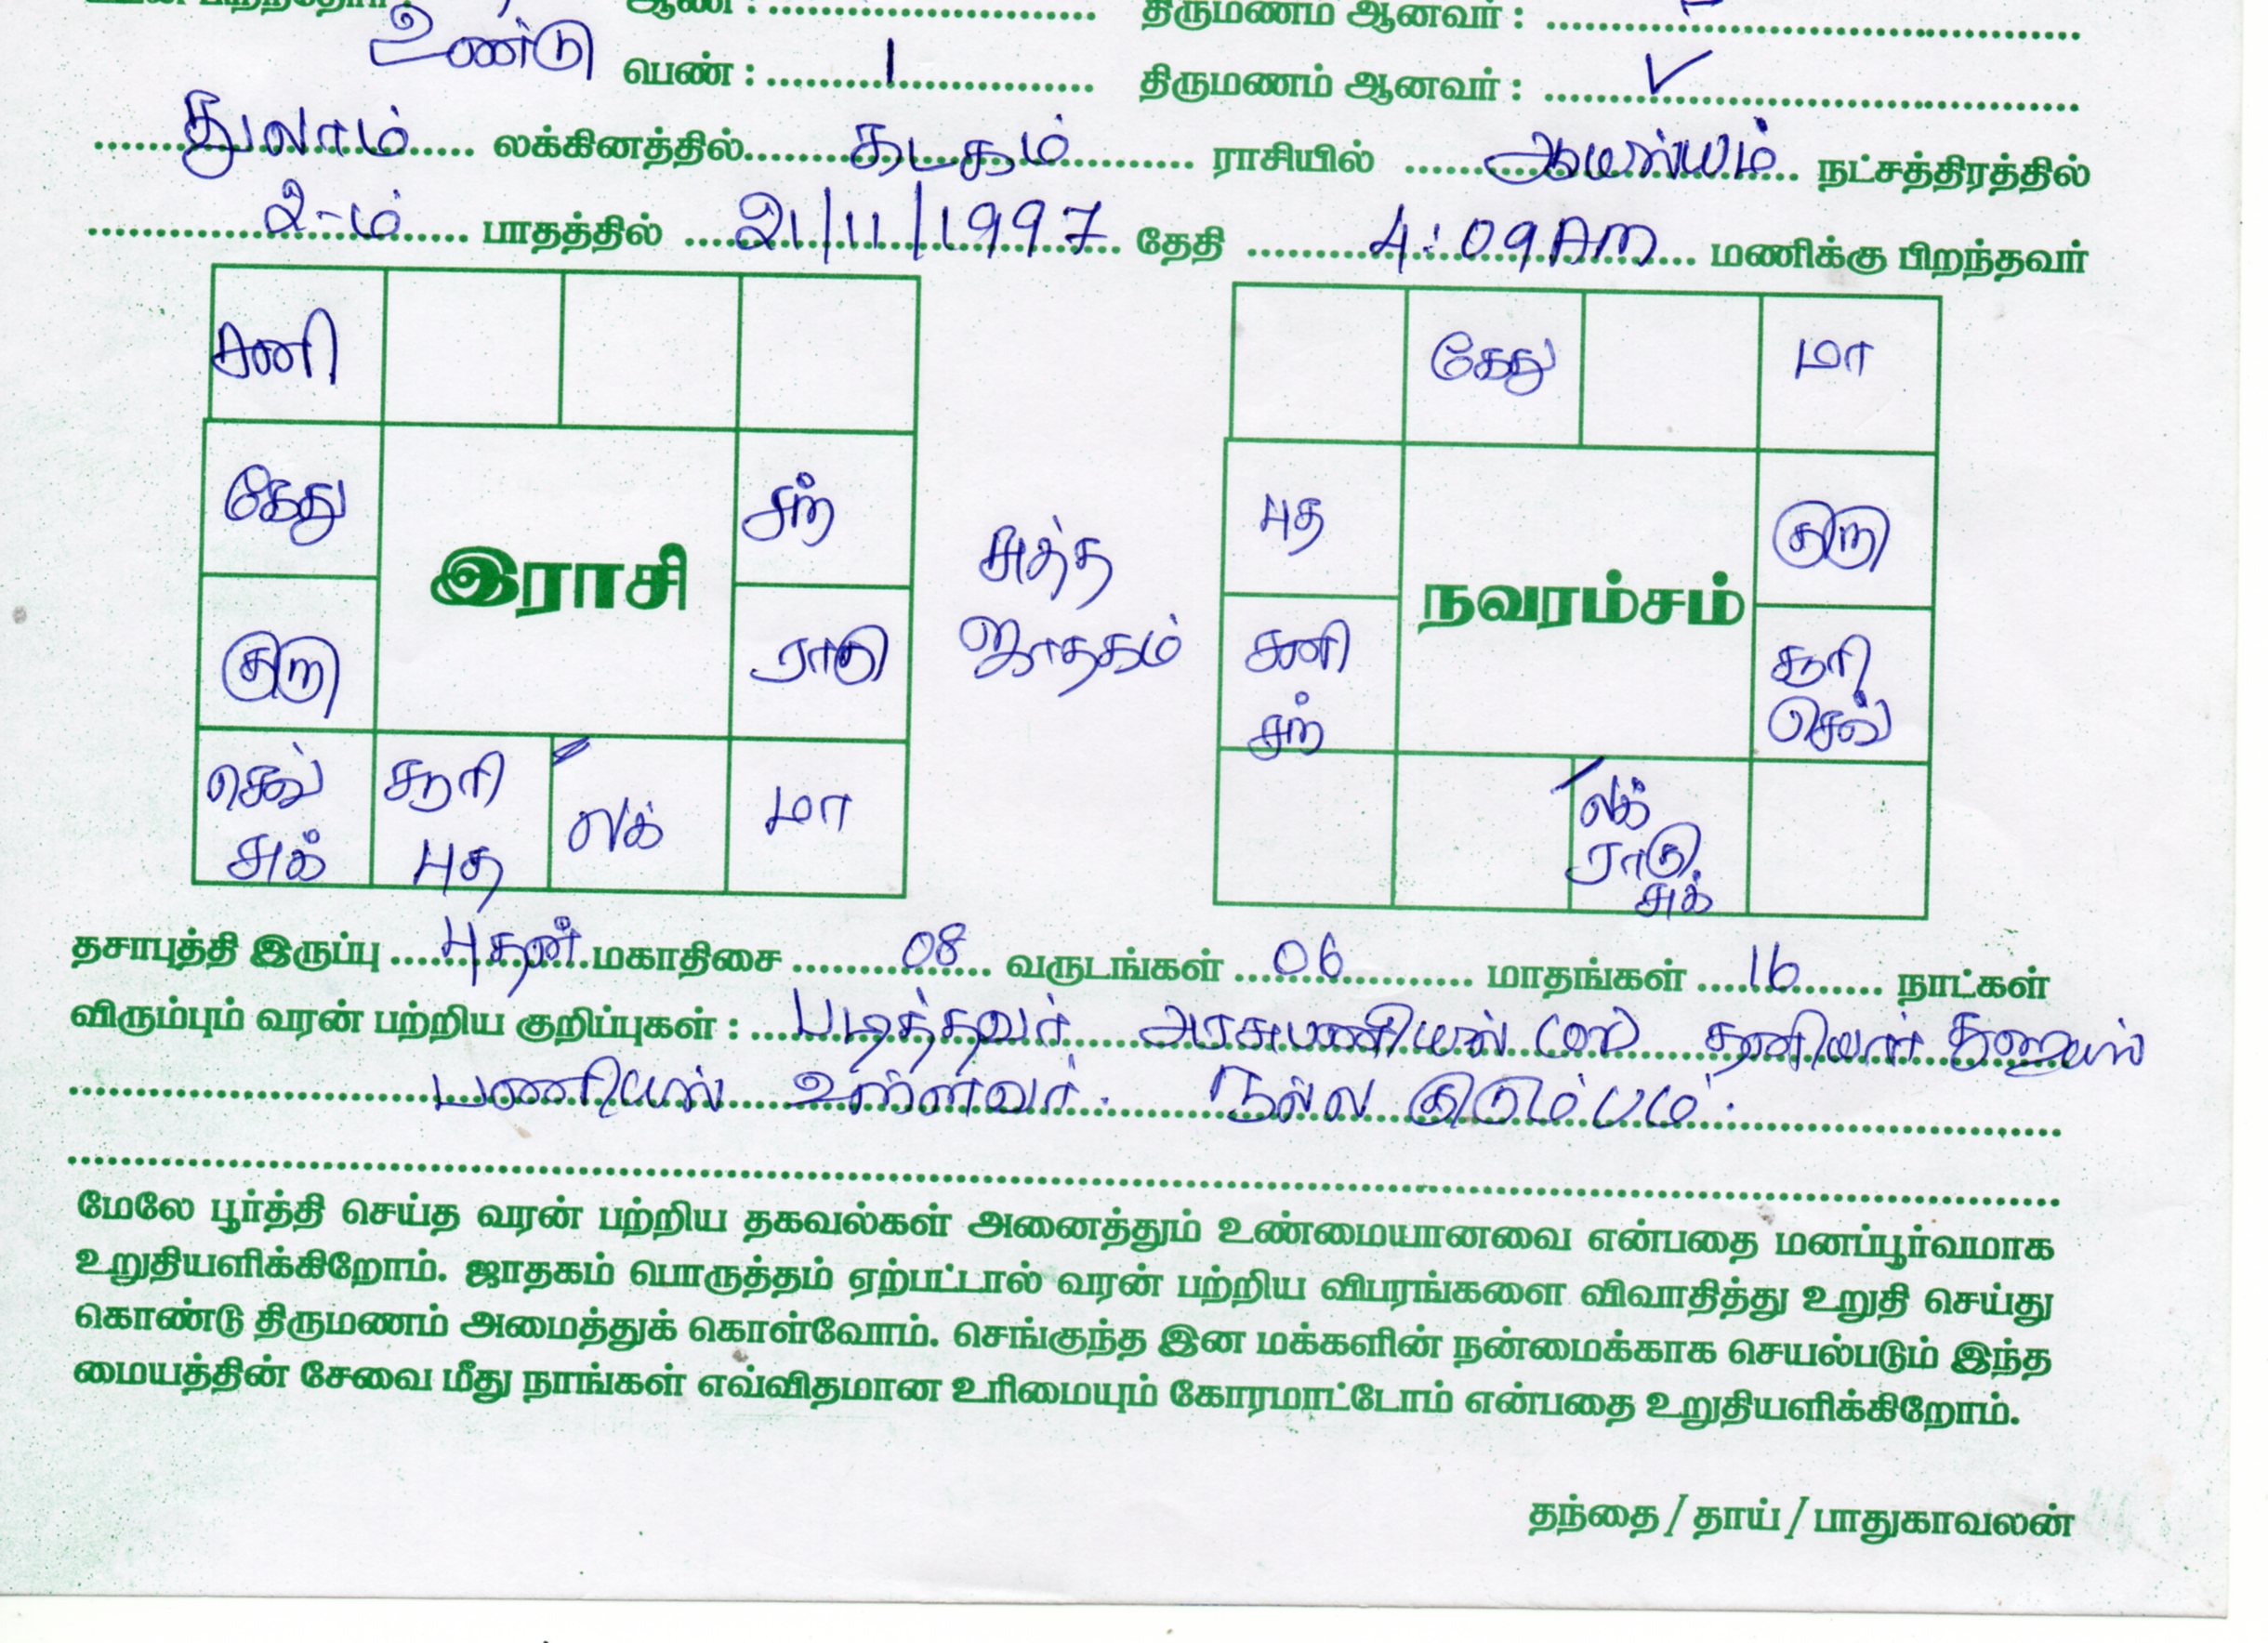 ஆண் : திருமணம் ஆனவர் :
உண்டு பெண் : 1 திருமணம் ஆனவர் : ✓
துலாம் லக்கினத்தில் கடகம் ராசியில் ஆயில்யம் நட்சத்திரத்தில்
2-ம் பாதத்தில் 21/11/1997 தேதி 4:09 AM மணிக்கு பிறந்தவர்
சனி
கேது
மா
கேது
சந்
புத
குரு
இராசி
சுத்த
ஜாதகம்
நவரம்சம்
குரு
ராகு
சனி
சந்
சூரி
செவ்
செவ்
சுக்
சூரி
புத
லக்
மா
லக்
ராகு
சுக்
தசாபுத்தி இருப்பு புதன் மகாதிசை 08 வருடங்கள் 06 மாதங்கள் 16 நாட்கள்
விரும்பும் வரன் பற்றிய குறிப்புகள் : படித்தவர் அரசுபணியில் (or) தனியார் துறையில்
பணியில் உள்ளவர். நல்ல குடும்பம்.
மேலே பூர்த்தி செய்த வரன் பற்றிய தகவல்கள் அனைத்தும் உண்மையானவை என்பதை மனப்பூர்வமாக
உறுதியளிக்கிறோம். ஜாதகம் பொருத்தம் ஏற்பட்டால் வரன் பற்றிய விபரங்களை விவாதித்து உறுதி செய்து
கொண்டு திருமணம் அமைத்துக் கொள்வோம். செங்குந்த இன மக்களின் நன்மைக்காக செயல்படும் இந்த
மையத்தின் சேவை மீது நாங்கள் எவ்விதமான உரிமையும் கோரமாட்டோம் என்பதை உறுதியளிக்கிறோம்.
தந்தை / தாய் / பாதுகாவலன்